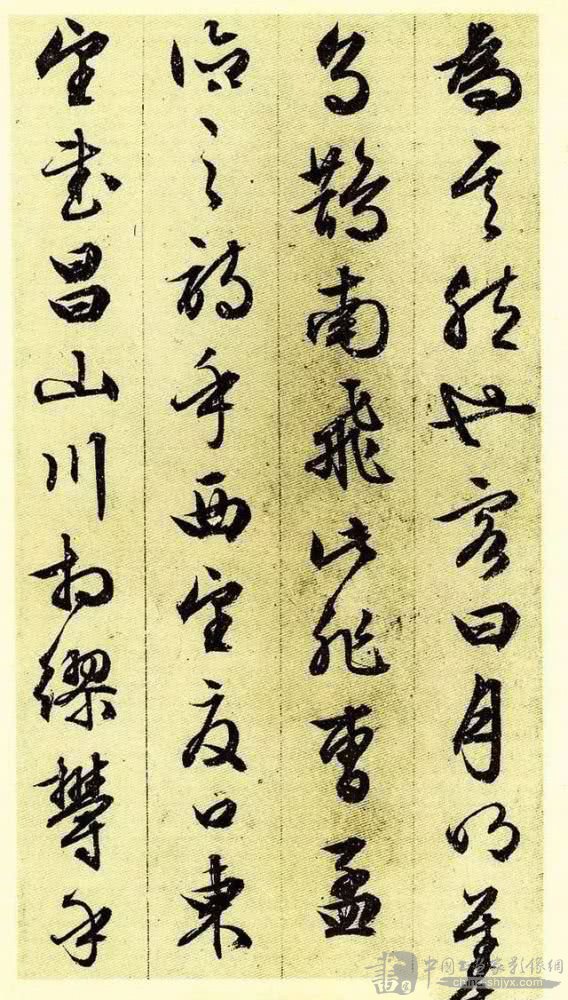 為其然也客曰月明星
烏鵲南飛此非曹孟
德之詩乎西望夏口東
望武昌山川相繆鬱乎
書
中国书画家影像网
china-shjyx.com